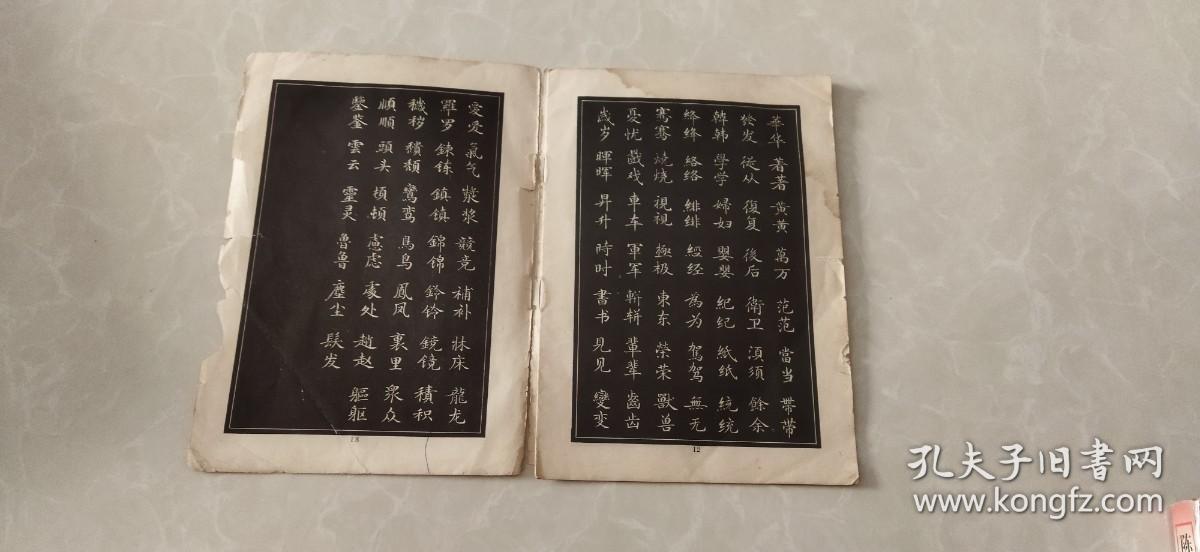 華华 著著 黃黄 萬万 范范 當当 帶带
發发 從从 復复 後后 衛卫 須须 餘余
韓韩 學学 婦妇 嬰婴 紀纪 紙纸 統统
絳绛 絡络 緋绯 經经 為为 駕驾 無无
騫骞 燒烧 視视 極极 東东 榮荣 獸兽
憂忧 戲戏 車车 軍军 輩辈 齒齿
歲岁 暉晖 昇升 時时 書书 見见 變变
12
愛爱 氣气 漿浆 競竞 補补 牀床 龍龙
罗 鍊 鎮镇 錦锦 鈴铃 鏡镜 積积
穢秽 穨颓 鸞鸾 鳥鸟 鳳凤 裏里 眾众
順顺 頭头 頓顿 慮虑 處处 趙赵 軀躯
鑒鉴 雲云 靈灵 魯鲁 塵尘 髮发
孔夫子旧书网
www.kongfz.com
陈